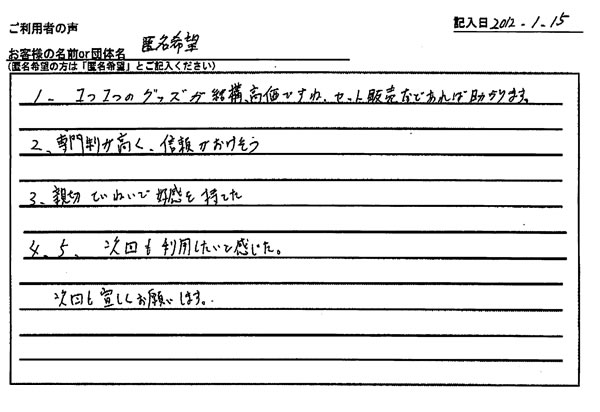 ご利用者の声
記入日2012.1.15
お客様の名前or団体名 匿名希望
(匿名希望の方は「匿名希望」とご記入ください)
1. 1つ1つのグッズが結構、高価ですね、セット販売などあれば助かります。
2、専門制が高く、信頼がおけそう
3、親切ていねいで好感を持てた
4、5、次回も利用したいと感じた。
次回も宜しくお願いします。